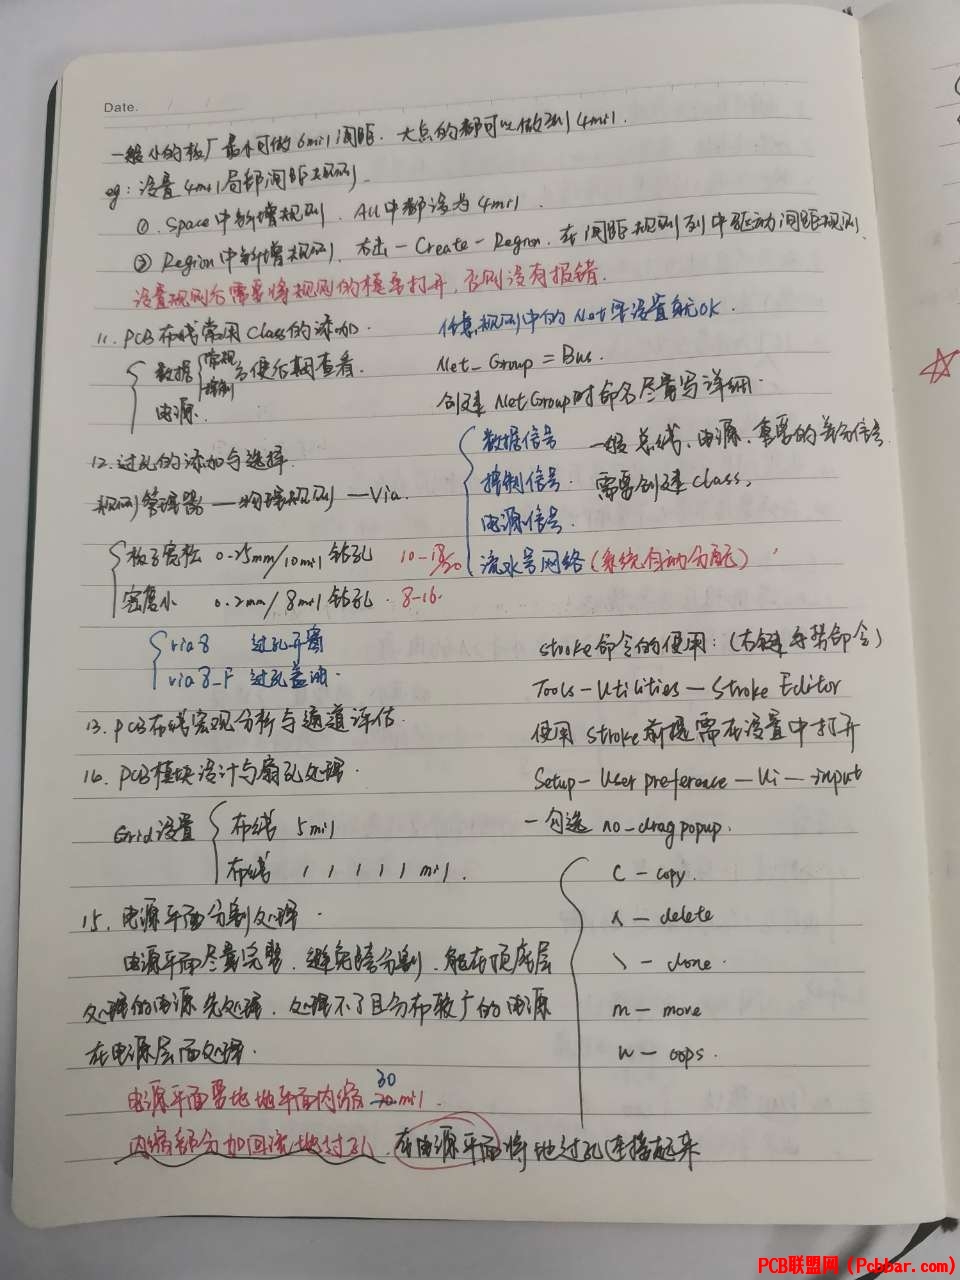 Date.
一般小的板厂最小可做6mil间距. 大点的都可以做到4mil.
eg: 设置4mil局部间距规则.
①. Space中新增规则. All中都设为4mil.
② Region中新增规则. 右击-Create-Region. 在间距规则列中驱动间距规则.
设置规则后需要将规则的模式打开, 否则没有报错.
11. PCB布线常用Class的添加.
任意规则中的Net里设置就OK.
数据 常规 控制 方便后期查看.
电源.
Net_Group = Bus.
创建NetGroup时命名尽量写详细.
数据信号
控制信号.
电源信号.
流水号网络(系统自动分配)
一般总线、电源、重要的差分信号
需要创建class.
12. 过孔的添加与选择.
规则管理器—物理规则—Via.
板子宽松 0.25mm/10mil 钻孔 10-18/20
密度小 0.2mm/8mil 钻孔. 8-16.
via8 过孔开窗
via8_F 过孔盖油.
stroke命令的使用: (右键手势命令)
Tools-Utilities-Stroke Editor
使用stroke前提需在设置中打开
Setup-User preference-Ui-input
-勾选 no_dragpopup.
13. PCB布线宏观分析与通道评估.
14. PCB模块设计与扇孔处理.
Grid设置
布线 5mil
布线 1 1 1 1 1 mil.
C - copy.
∧ - delete
\ - done.
m - move
w - oops.
15. 电源平面分割处理.
电源平面尽量完整. 避免跨分割. 能在顶底层
处理的电源先处理. 处理不了且分布较广的电源
在电源层面处理.
电源平面要比地平面内缩30mil.
内缩部分加回流地过孔. 在电源平面将地过孔连接起来
PCB联盟网 (Pcbbar.com)